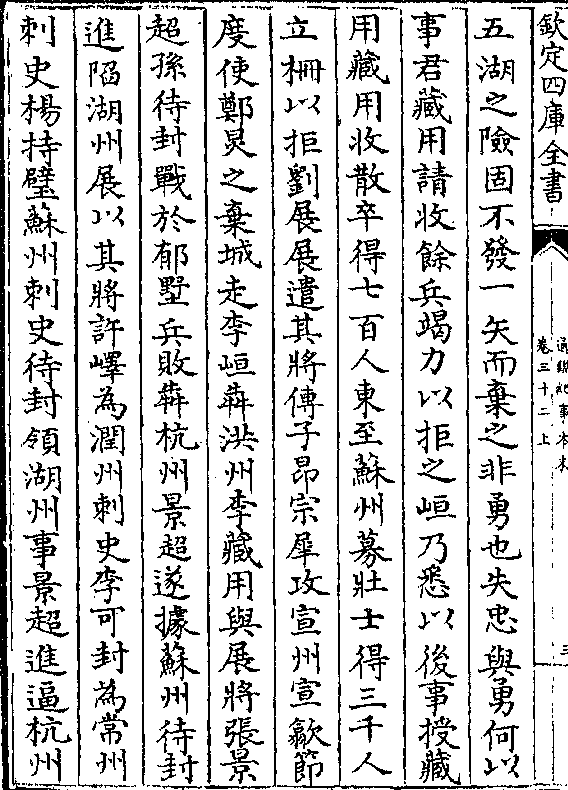 欽定四庫全書
通鑑紀事本末
卷三十二上
三
五湖之險固不發一矢而棄之非勇也失忠與勇何以
事君藏用請收餘兵竭力以拒之峘乃悉以後事授藏
用藏用收散卒得七百人東至蘇州募壯士得三千人
立柵以拒劉展展遣其將傅子昂宗犀攻宣州宣歙節
度使鄭炅之棄城走李峘犇洪州李藏用與展將張景
超孫待封戰於郁墅兵敗犇杭州景超遂據蘇州待封
進陷湖州展以其將許嶧為潤州刺史李可封為常州
刺史楊持璧蘇州刺史待封領湖州事景超進逼杭州